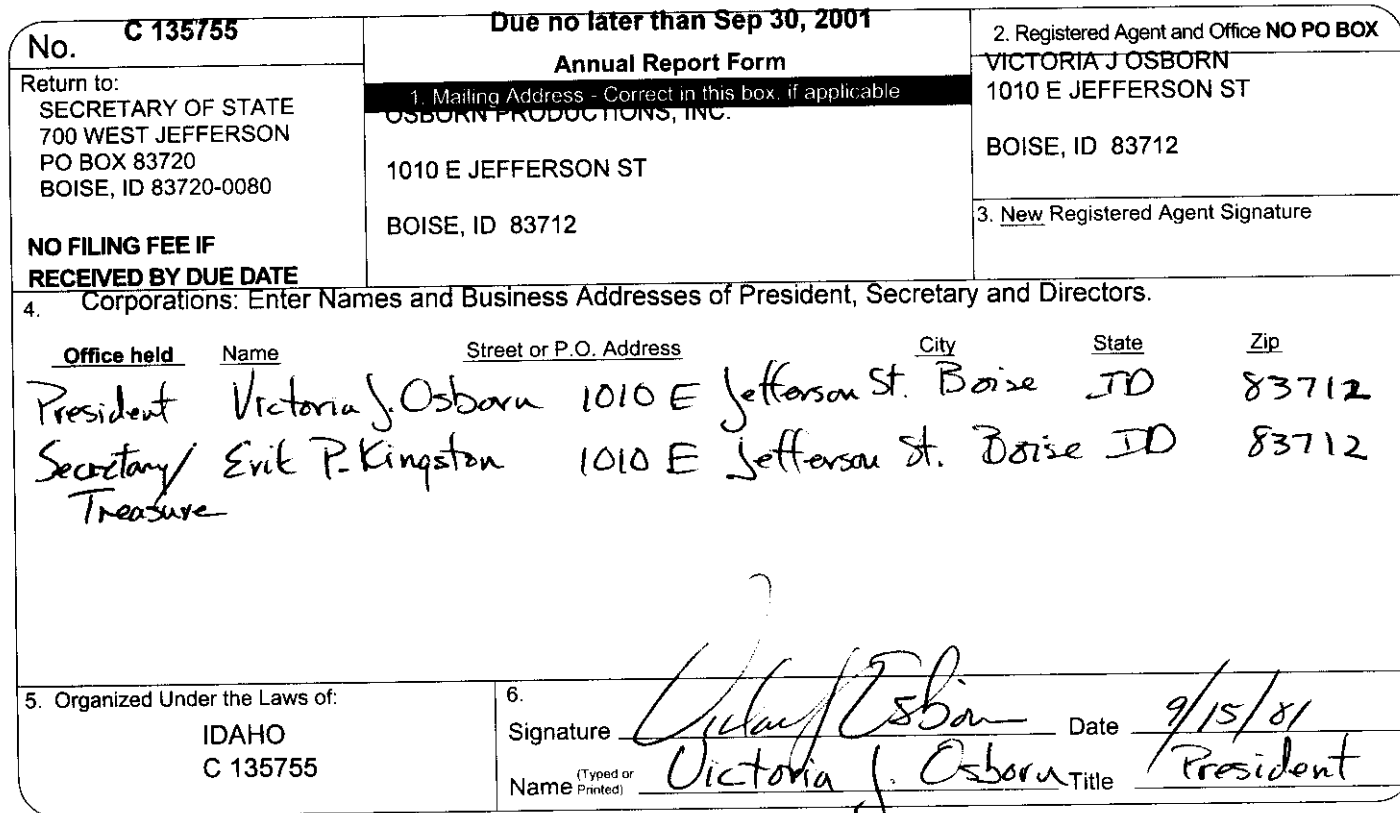 No. C 135755
Return to:
SECRETARY OF STATE
700 WEST JEFFERSON
PO BOX 83720
BOISE, ID 83720-0080
NO FILING FEE IF
RECEIVED BY DUE DATE
Due no later than Sep 30, 2001
Annual Report Form
1. Mailing Address - Correct in this box, if applicable
OSBORN PRODUCTIONS, INC.
1010 E JEFFERSON ST
BOISE, ID 83712
2. Registered Agent and Office NO PO BOX
VICTORIA J OSBORN
1010 E JEFFERSON ST
BOISE, ID 83712
3. New Registered Agent Signature
4. Corporations: Enter Names and Business Addresses of President, Secretary and Directors.
Office held Name Street or P.O. Address City State Zip
President Victoria J. Osborn 1010 E Jefferson St. Boise ID 83712
Secretary/ Erik P. Kingston 1010 E Jefferson St. Boise ID 83712
Treasure
5. Organized Under the Laws of:
IDAHO
C 135755
6.
Signature Victoria J Osborn Date 9/15/01
Name (Typed or Printed) Victoria J. Osborn Title President